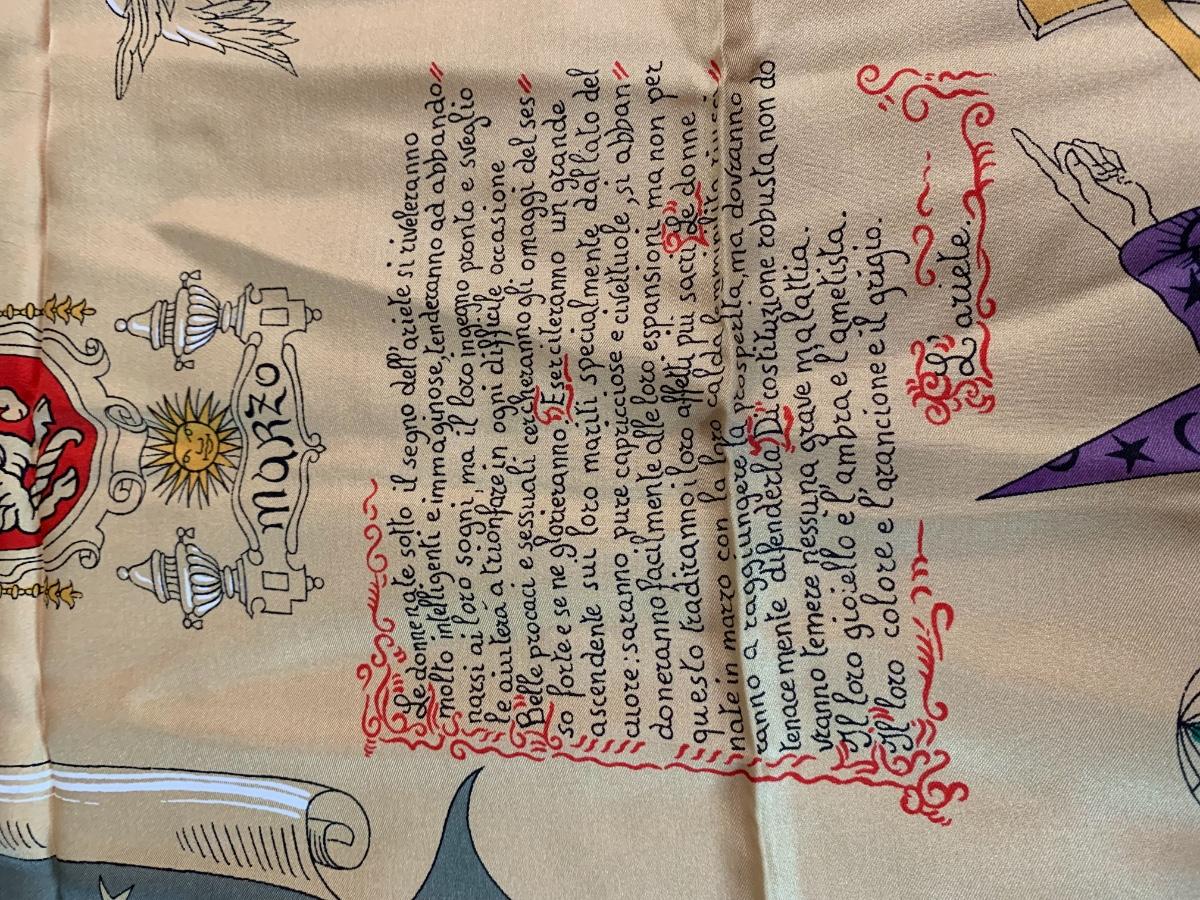 Marzo
Le donne nate sotto il segno dell'ariete si riveleranno
molto intelligenti e immaginose, tenderanno ad abbando"
narsi ai loro sogni, ma il loro ingegno pronto e sveglio
le aiuterá a trionfare in ogni difficile occasione
Belle procaci e sessuali cercheranno gli omaggi del ses"
so forte e se ne glorieranno. Eserciteranno un grande
ascendente sui loro mariti specialmente dal lato del
cuore: saranno pure capricciose e civettuole, si abban"
doneranno facilmente alle loro espansioni ma non per
questo tradiranno i loro affetti piú sacri. Le donne
nate in marzo con la loro calda
ranno a raggiungere la prosperitá, ma dovranno
tenacemente difenderla. Di costituzione robusta non do
vranno temere nessuna grave malattia.
Il loro gioiello è l'ambra e l'ametista.
Il loro colore e l'arancione e il grigio.
L'ariete.